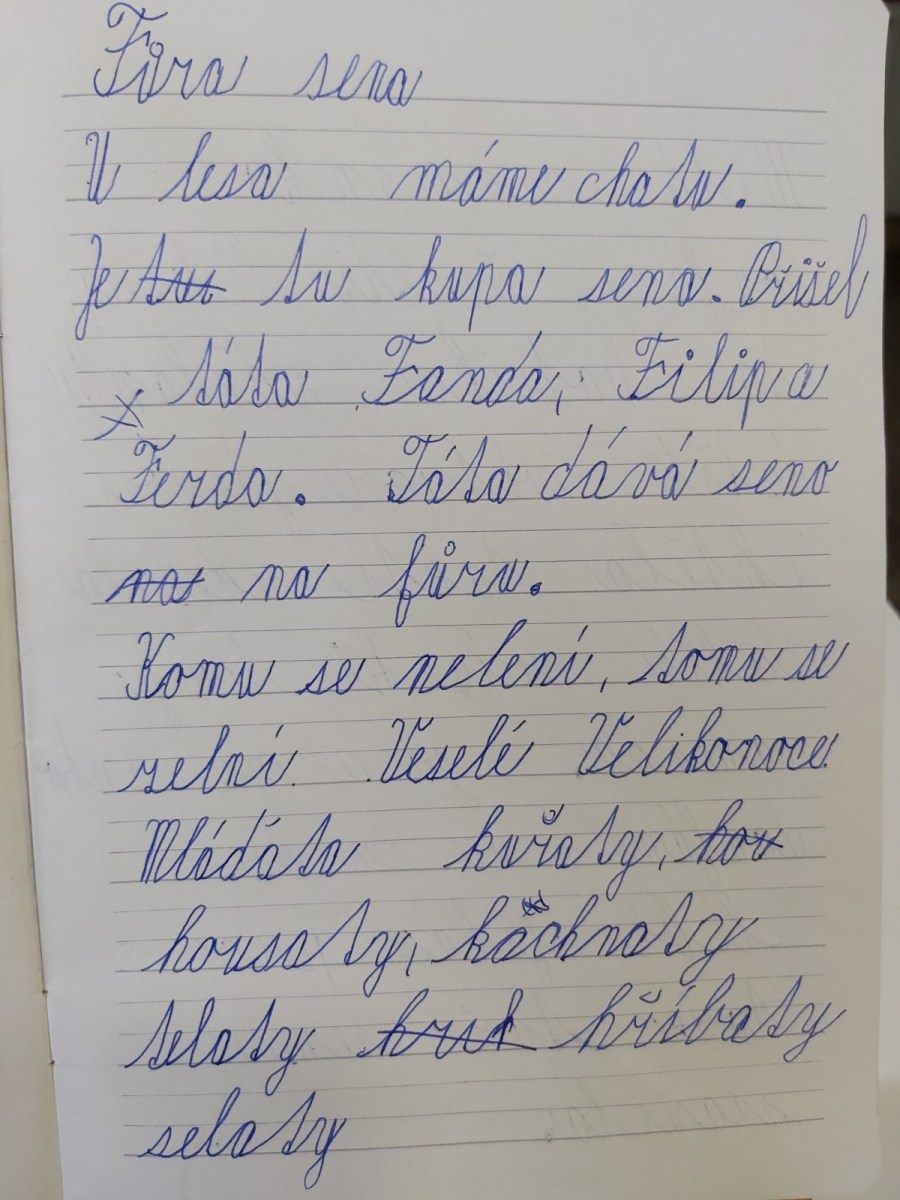 Fůra sena
U lesa máme chatu.
Je tui tu kupa sena. Přišel
táta Fanda, Filip a
Ferda. Táta dává seno
nat na fůru.
Komu se nelení, tomu se
zelní. Veselé Velikonoce
Mláďata kuřaty, hou
housaty, káchnaty
telaty hruk hříbaty
selaty